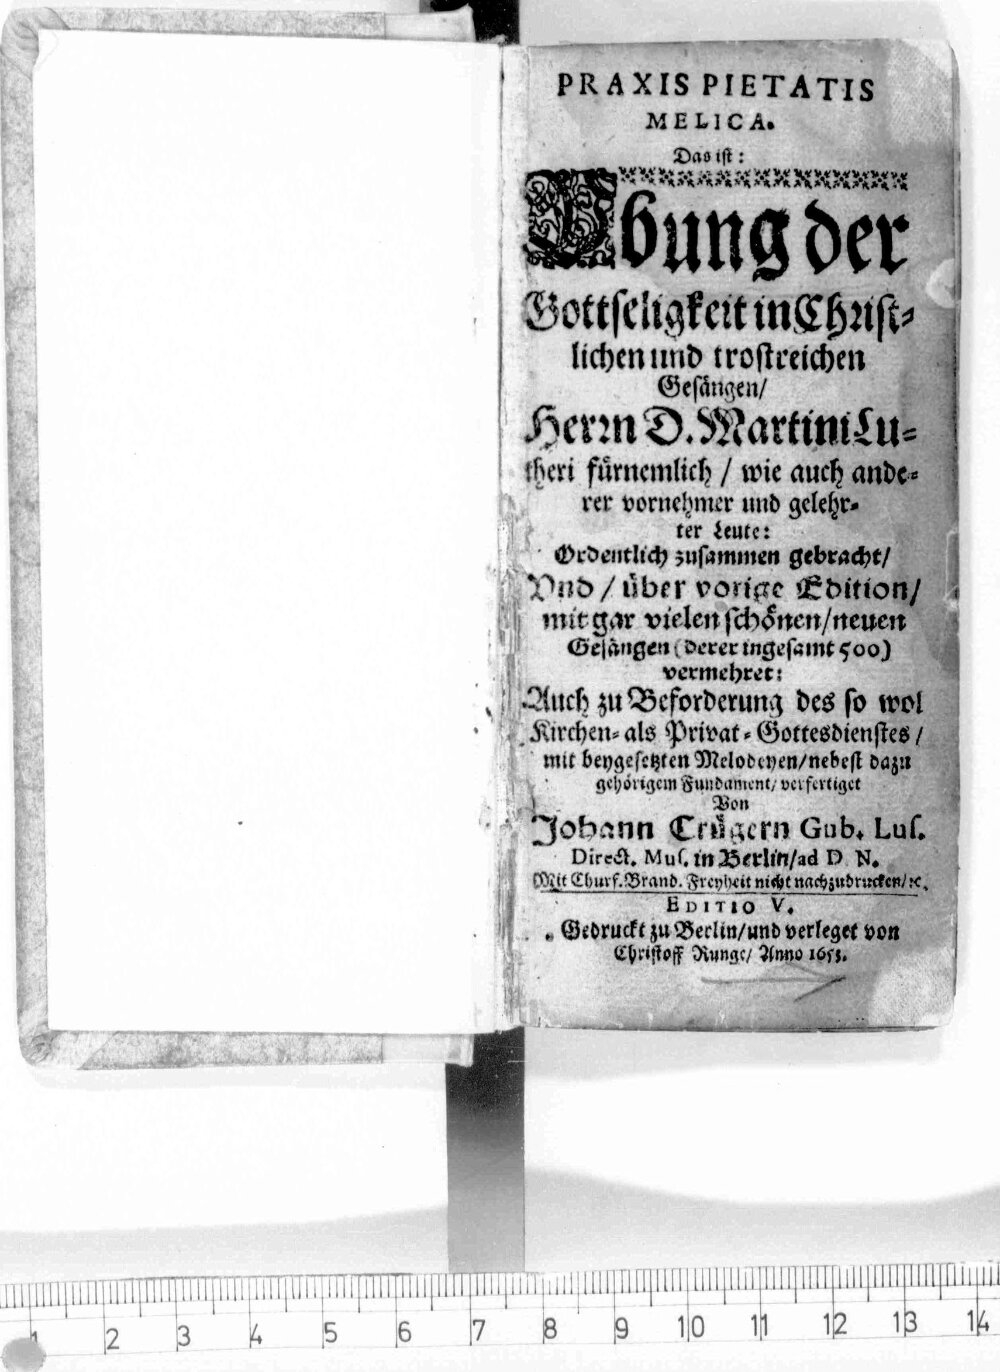 PRAXIS PIETATIS
MELICA.
Das ist:
Ubung der
Gottseligkeit in Christ-
lichen und trostreichen
Gesängen/
Herrn D. Martini Lu-
theri fürnemlich / wie auch ande-
rer vornehmer und gelehr-
ter Leute:
Ordentlich zusammen gebracht/
Vnd / über vorige Edition/
mit gar vielen schönen/neuen
Gesängen (derer ingesamt 500)
vermehret:
Auch zu Beforderung des so wol
Kirchen- als Privat-Gottesdienstes /
mit beygesetzten Melodeyen/nebest dazu
gehörigem Fundament/ verfertiget
Von
Johann Crügern Gub. Lus.
Direct. Mus. in Berlin/ad D. N.
Mit Churf. Brand. Freyheit nicht nachzudrucken/ꝛc.
EDITIO V.
Gedruckt zu Berlin/und verleget von
Christoff Runge/ Anno 1653.
1 2 3 4 5 6 7 8 9 10 11 12 13 14